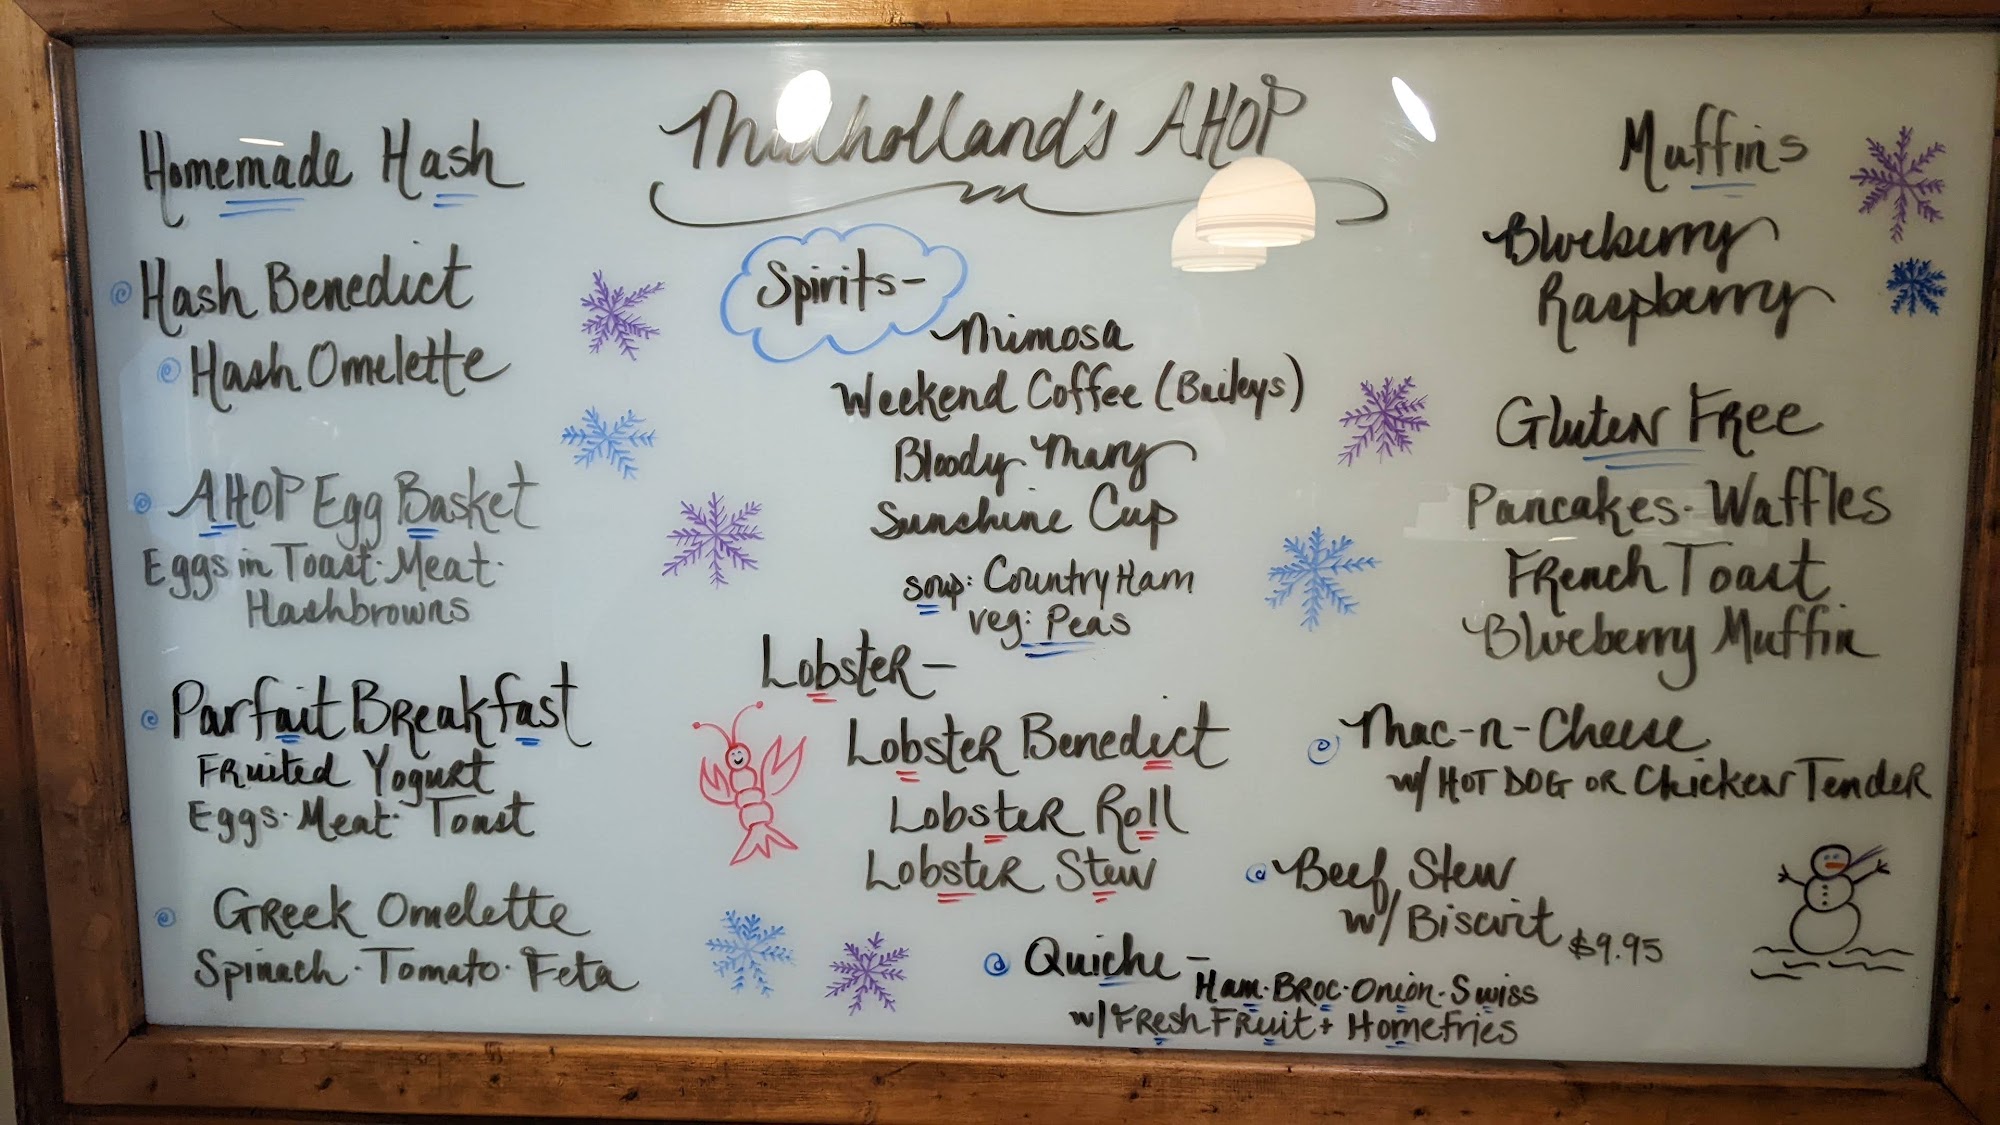 Mulholland's AHOP
Homemade Hash
Hash Benedict
Hash Omelette
AHOP Egg Basket
Eggs in Toast · Meat ·
Hashbrowns
Parfait Breakfast
Fruited Yogurt
Eggs · Meat · Toast
Greek Omelette
Spinach · Tomato · Feta
Spirits -
Mimosa
Weekend Coffee (Baileys)
Bloody Mary
Sunshine Cup
soup: Country Ham
veg: Peas
Lobster -
Lobster Benedict
Lobster Roll
Lobster Stew
Quiche -
Ham · Broc · Onion · Swiss
w/ Fresh Fruit + Homefries
Muffins
Blueberry
Raspberry
Gluten Free
Pancakes · Waffles
French Toast
Blueberry Muffin
Mac-n-Cheese
w/ HOT DOG OR Chicken Tender
Beef Stew
w/ Biscuit $9.95